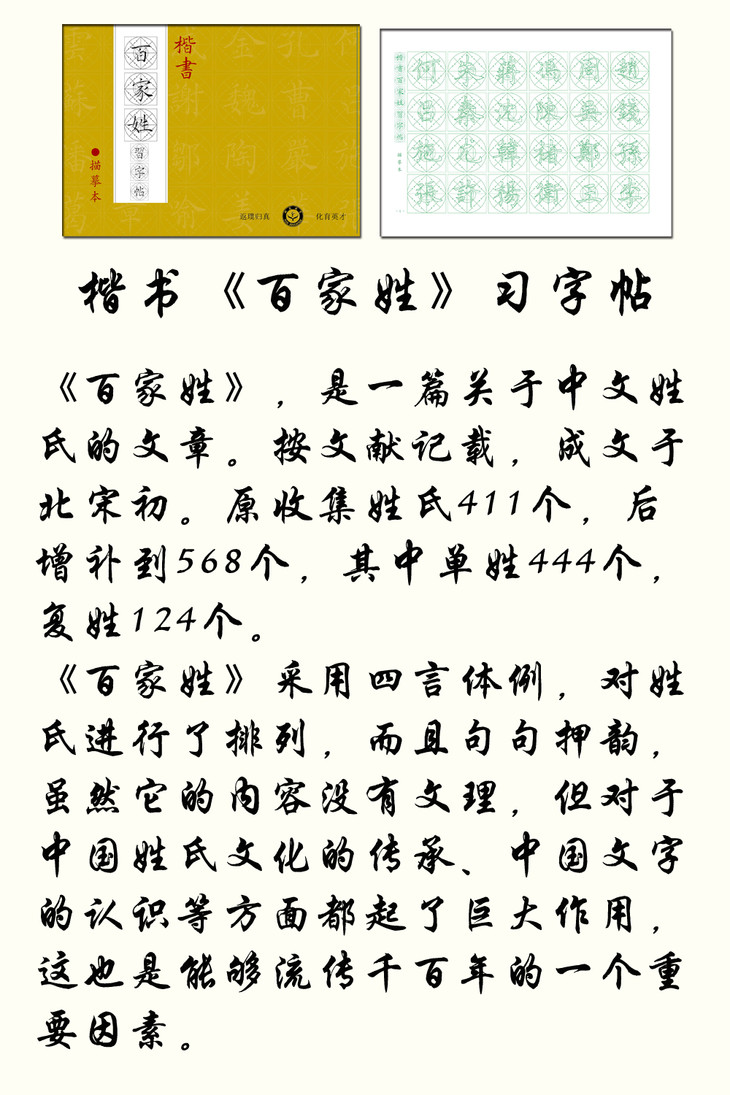 楷書
百家姓
習字帖
●描摹本
返璞归真
化育英才
楷書百家姓習字帖
描摹本
何朱蔣馮周趙
呂秦沈陳吳錢
施尤韓褚鄭孫
張許楊衛王李
楷书《百家姓》习字帖
《百家姓》，是一篇关于中文姓
氏的文章。按文献记载，成文于
北宋初。原收集姓氏411个，后
增补到568个，其中单姓444个，
复姓124个。
《百家姓》采用四言体例，对姓
氏进行了排列，而且句句押韵，
虽然它的内容没有文理，但对于
中国姓氏文化的传承、中国文字
的认识等方面都起了巨大作用，
这也是能够流传千百年的一个重
要因素。